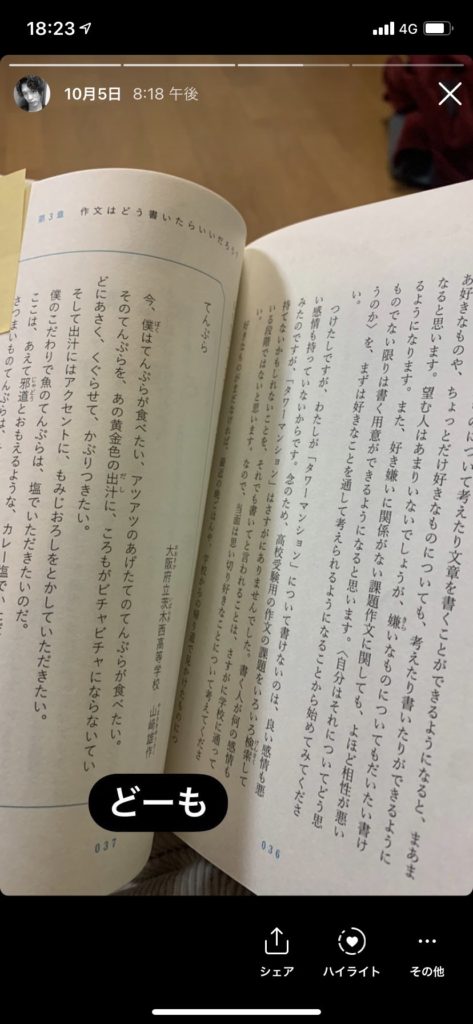 18:23
4G
10月5日 8:18 午後
のについて考えたり文章を書くことができるようになると、まあま
あ好きなものや、ちょっとだけ好きなものについても、考えたり書いたりができるように
なると思います。望む人はあまりいないでしょうが、嫌いなものについてもだいたい書け
るようになります。また、好き嫌いに関係がない課題作文に関しても、よほど相性が悪い
ものでない限りは書く用意ができるようになると思います。〈自分はそれについてどう思
うのか〉を、まずは好きなことを通して考えられるようになることから始めてみてくださ
い。
つけたしですが、わたしが「タワーマンション」について書けないのは、良い感情も悪
い感情も持っていないからです。念のため、高校受験用の作文の課題をいろいろ検索して
みたのですが、「タワーマンション」はさすがにありませんでした。書く人が何の感情も
持てないかもしれないことを、それでも書いてと言われることは、さすがに学校に通って
いる段階ではないと思います。なので、当面は思い切り好きなことについて考えてくださ
い。
好きなものがまだなければ、最近の晩ごはんや、学校からの帰り道で見かけたものにつ
036
第3章 作文はどう書いたらいいだろう?
てんぷら
大阪府立茨木西高等学校 山崎雄作
今、僕はてんぷらが食べたい、アツアツのあげたてのてんぷらが食べたい。
そのてんぷらを、あの黄金色の出汁に、ころもがビチャビチャにならないてい
どにあさく、くぐらせて、かぶりつきたい。
そして出汁にはアクセントに、もみじおろしをとかしていただきたい。
僕のこだわりで魚のてんぷらは、塩でいただきたいのだ。
ここは、あえて邪道とおもえるような、カレー塩でいただ
さつまいものてんぷらは、
037
どーも
シェア
ハイライト
その他